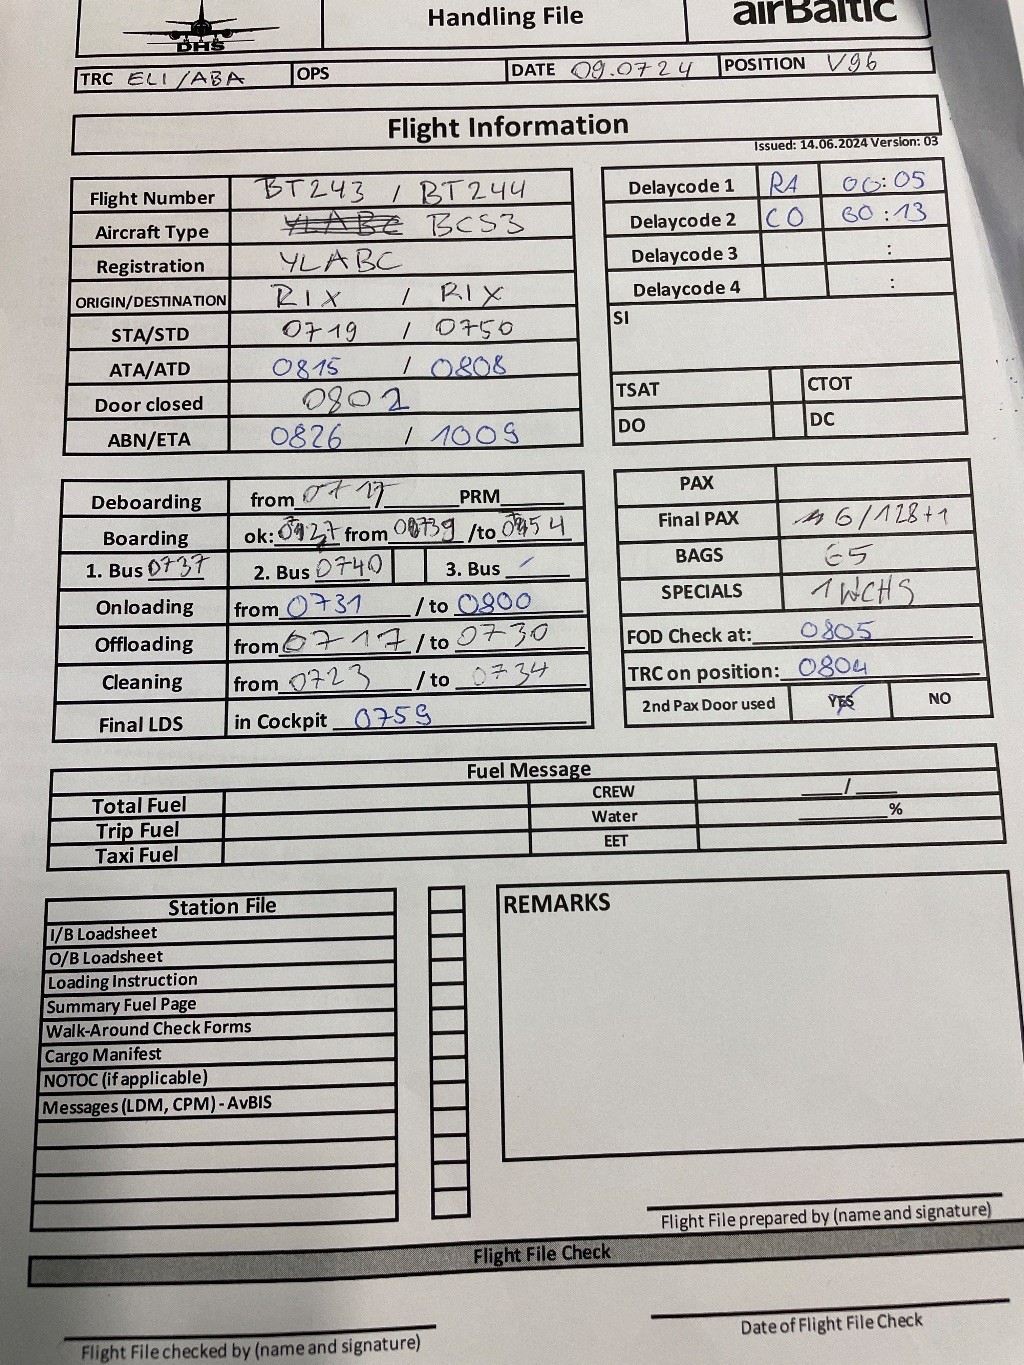 DHS
Handling File
airBaltic
TRC ELI/ABA OPS DATE 09.0724 POSITION V96
Flight Information
Issued: 14.06.2024 Version: 03
Flight Number BT243 / BT244
Aircraft Type BCS3
Registration YLABC
ORIGIN/DESTINATION RIX / RIX
STA/STD 0719 / 0750
ATA/ATD 0815 / 0808
Door closed 0802
ABN/ETA 0826 / 1009
Delaycode 1 RA 00:05
Delaycode 2 CO 00:13
Delaycode 3 :
Delaycode 4 :
SI
TSAT CTOT
DO DC
Deboarding from 0717 PRM
Boarding ok: from /to
1. Bus 0737 2. Bus 0740 3. Bus /
Onloading from 0731 / to 0800
Offloading from 0717 / to 0730
Cleaning from 0723 / to 0734
Final LDS in Cockpit 0759
PAX
Final PAX 6/128+1
BAGS 65
SPECIALS 1 WCHS
FOD Check at: 0805
TRC on position: 0804
2nd Pax Door used YES NO
Fuel Message
Total Fuel CREW /
Trip Fuel Water %
Taxi Fuel EET
Station File
I/B Loadsheet
O/B Loadsheet
Loading Instruction
Summary Fuel Page
Walk-Around Check Forms
Cargo Manifest
NOTOC (if applicable)
Messages (LDM, CPM) - AvBIS
REMARKS
Flight File prepared by (name and signature)
Flight File Check
Flight File checked by (name and signature)
Date of Flight File Check